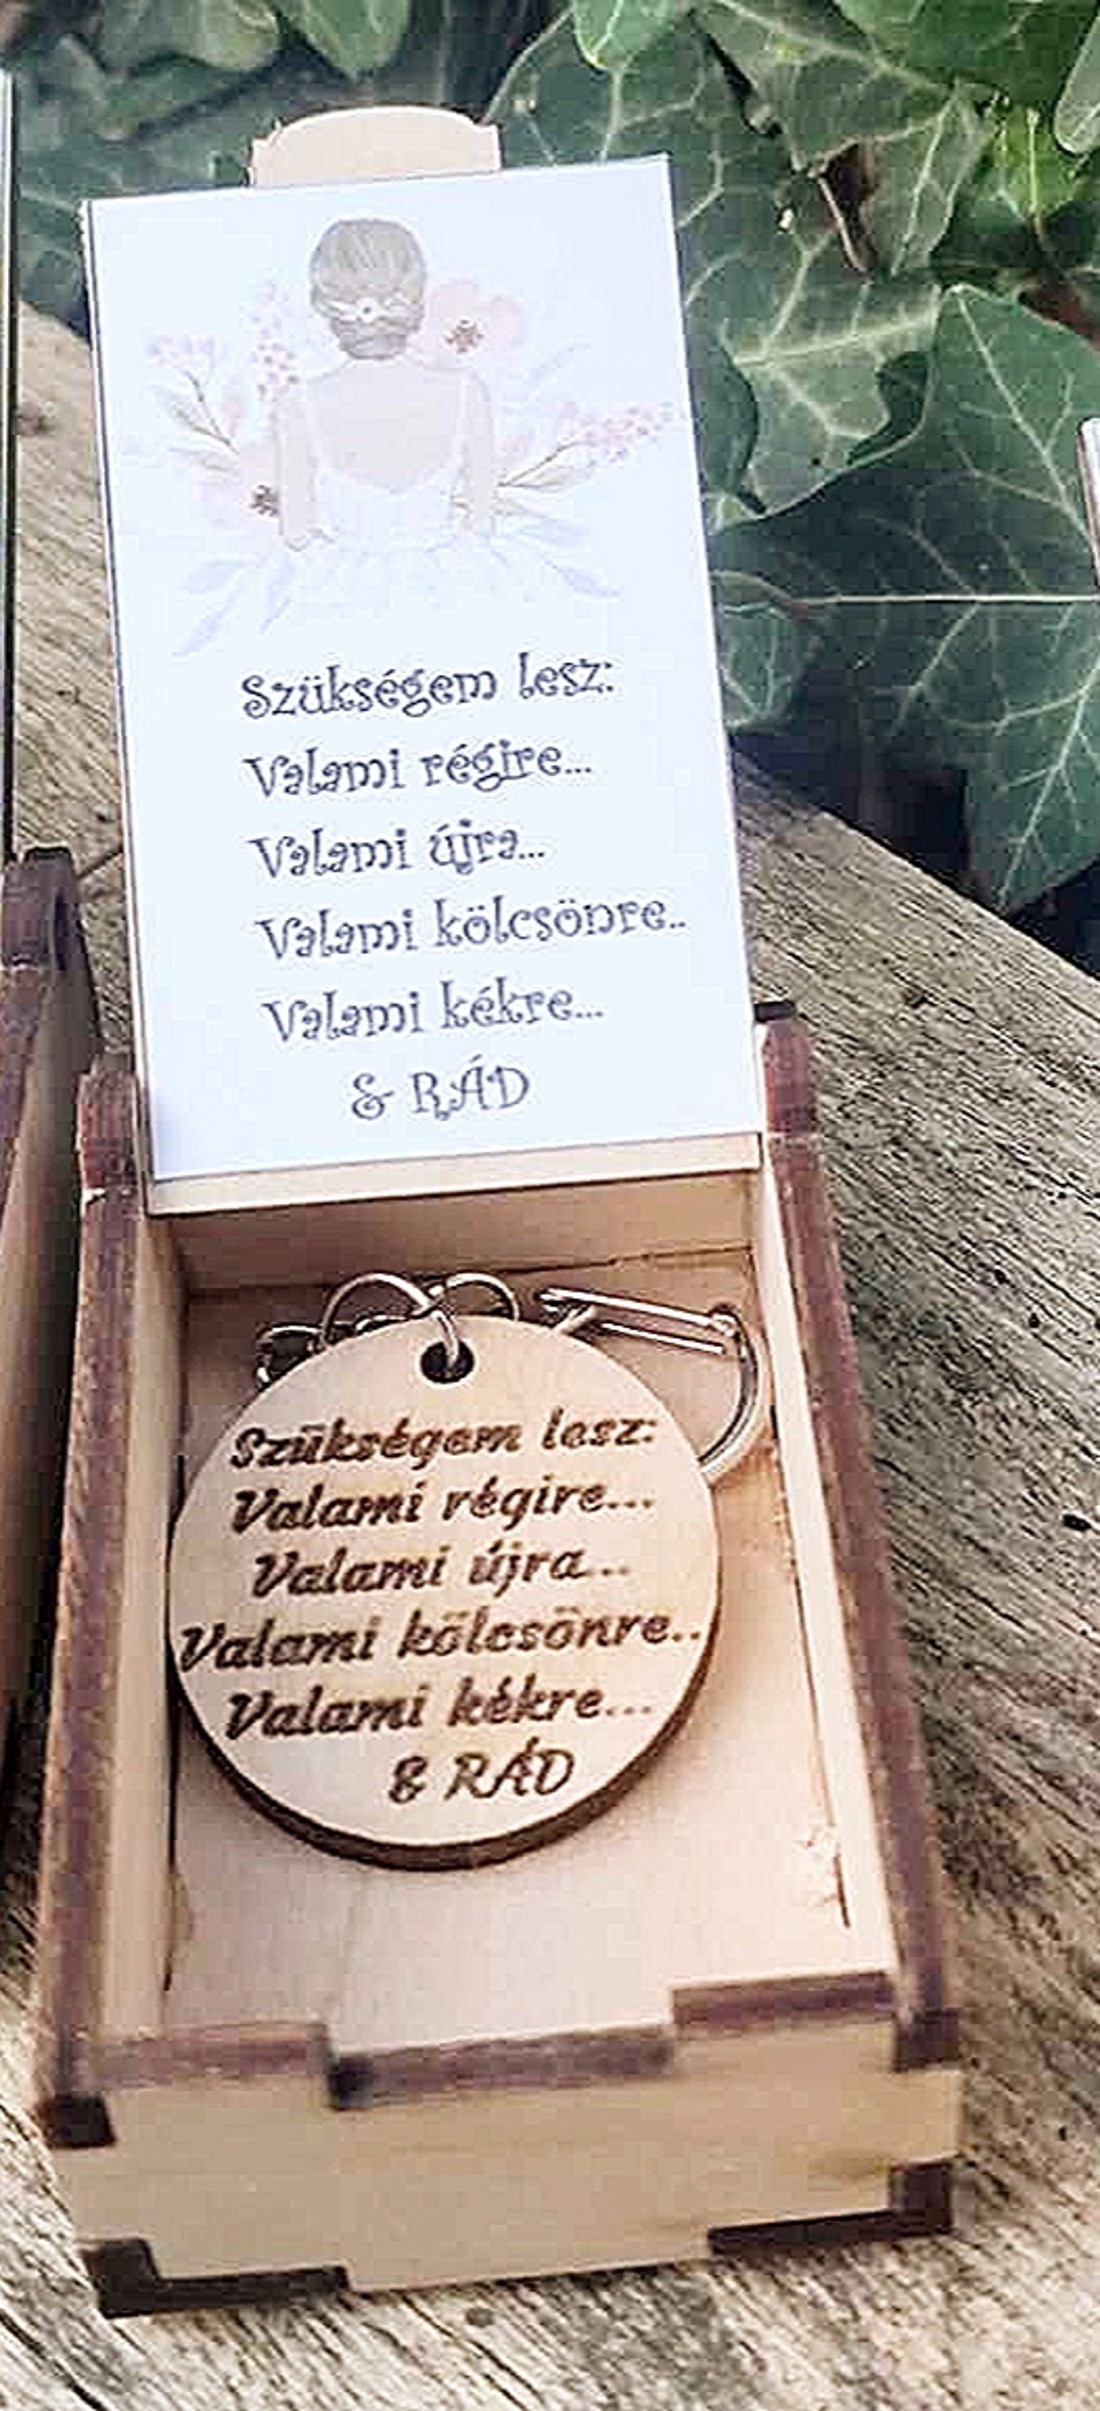 Szükségem lesz:
Valami régire...
Valami újra...
Valami kölcsönre..
Valami kékre...
& RÁD
Szükségem lesz:
Valami régire...
Valami újra...
Valami kölcsönre..
Valami kékre...
& RÁD